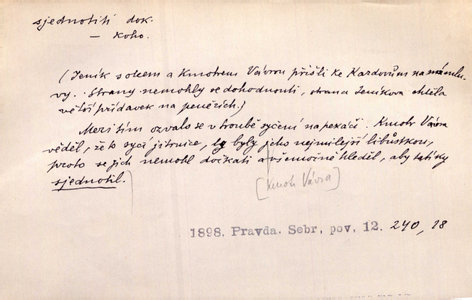 sjednotiti dok.
— koho.
(Jeník s otcem a kmotrem Vávrou přišli ke Kardovům na námluvy. Strany nemohly se dohodnouti, strana Jeníkova chtěla
větší přídavek na penězích.)
Mezi tím ozvalo se v troubě syčení na pekáči. Kmotr Vávra
věděl, že to syčí jitrnice, ty byly jeho nejmilejší libůstkou,
proto se jich nemohl dočkati a všemožně hleděl, aby tatíky
sjednotil.
(kmotr Vávra)
1898. Pravda. Sebr. pov. 12. 240, 18